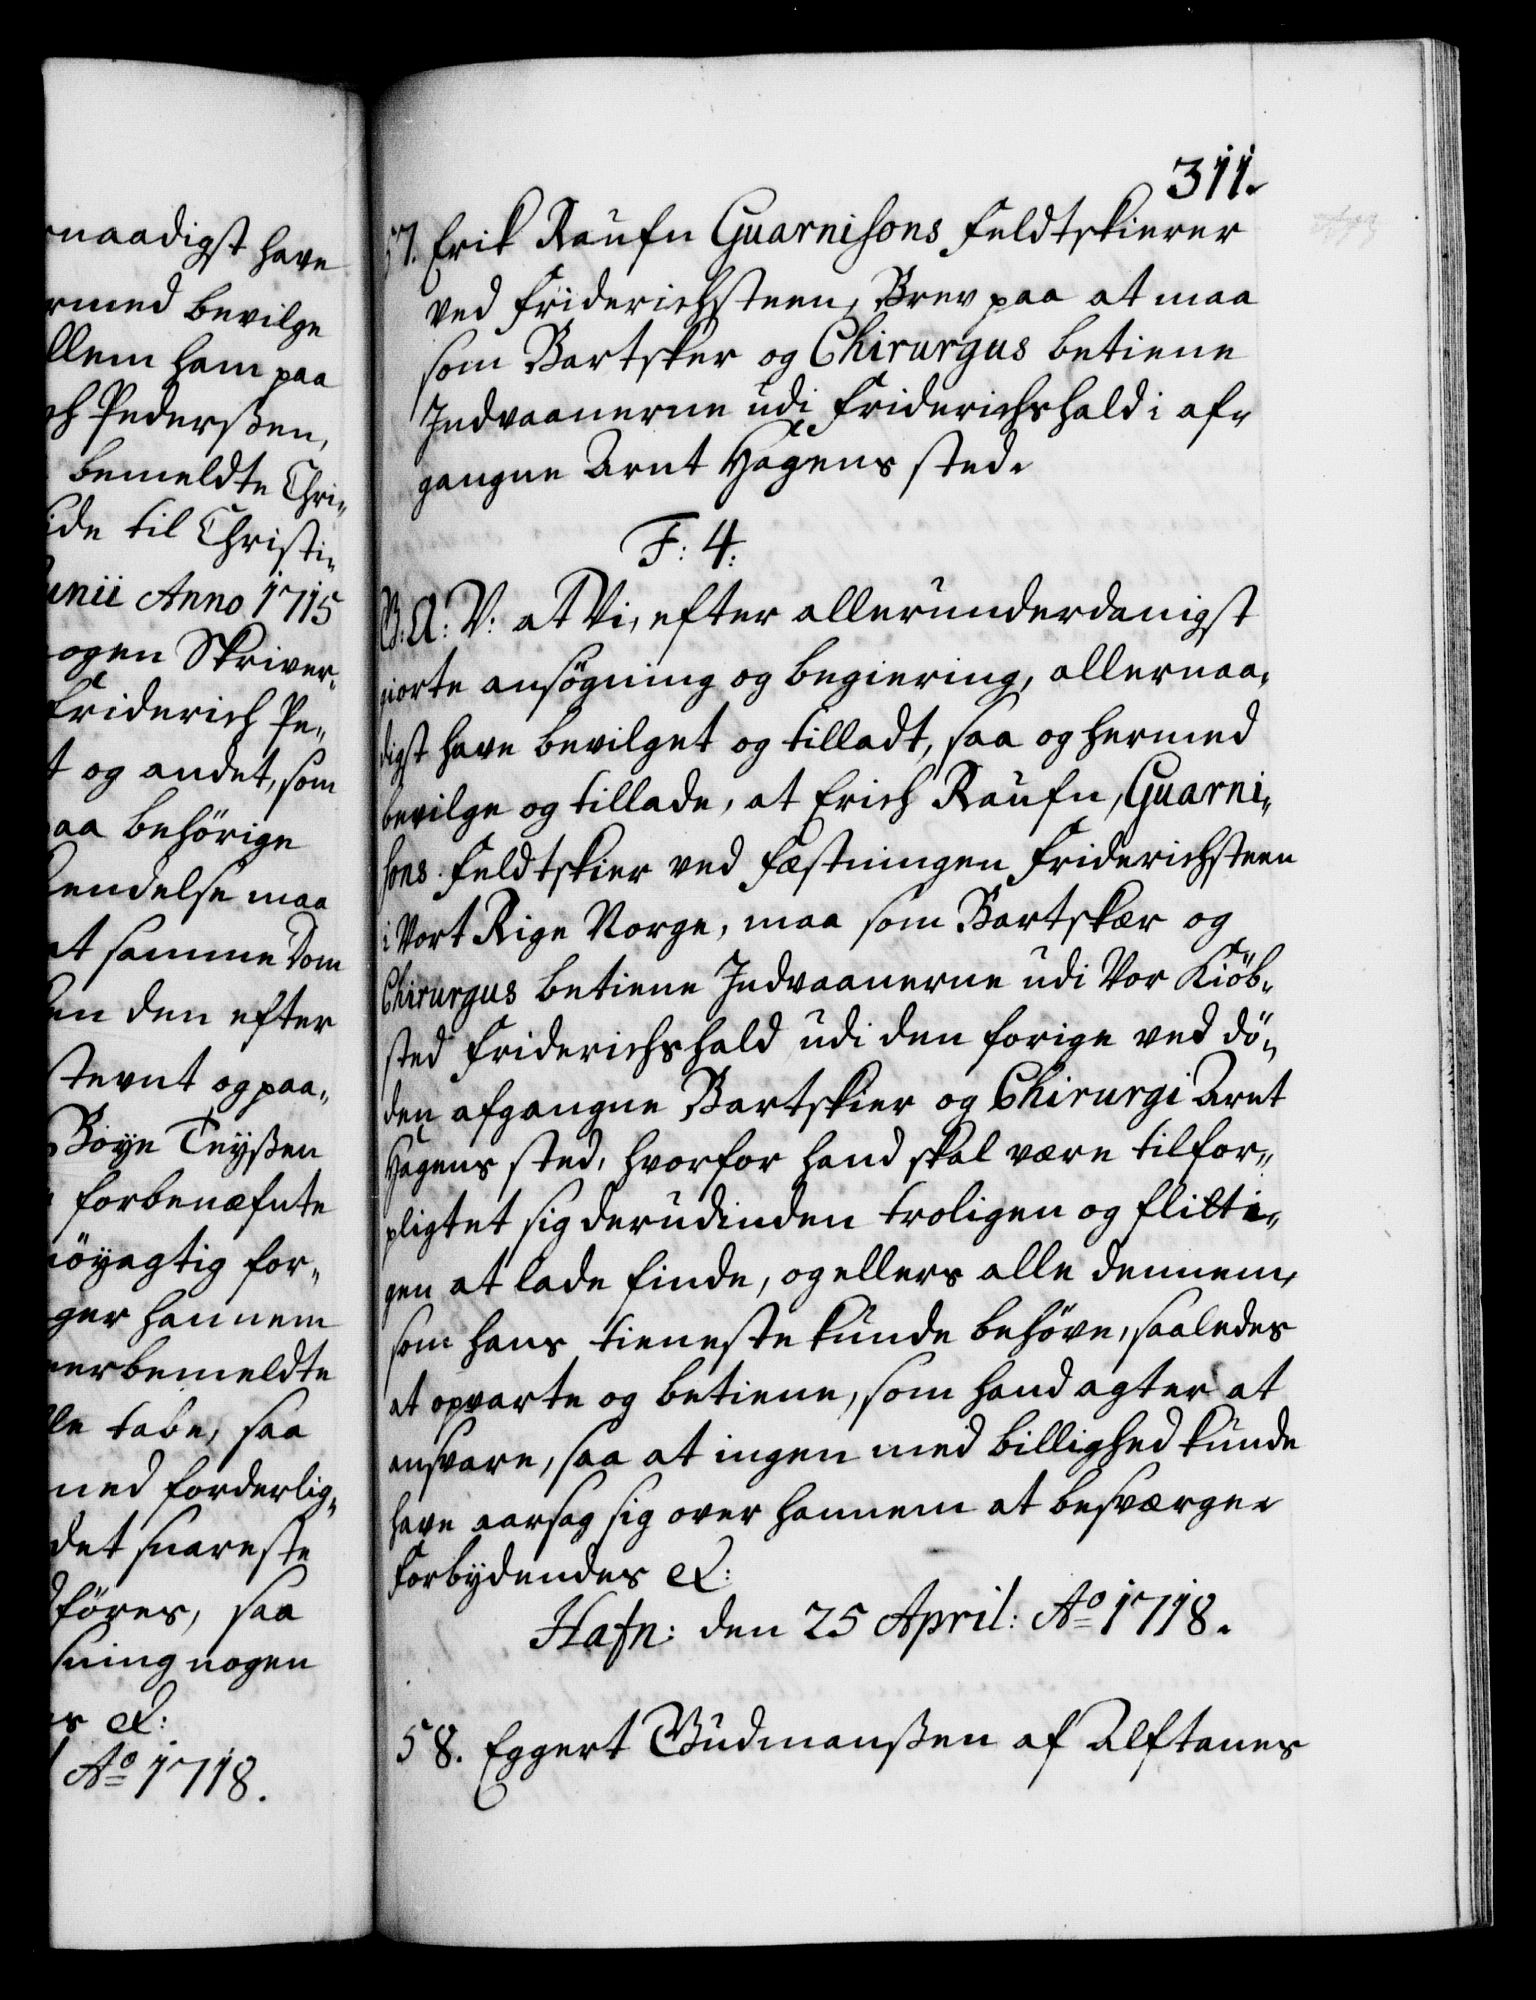 rnaadigst have
rmed bevilge
llem ham paa
ch Pederßen,
bemeldte Chri„
ide til Christi„
unii Anno 1715
ogen Skriver„
Friderich Pe„
t og andet, som
aa behörige
kendelse maa
at samme Dom
en den efter
stevnt og paa„
Boye Teyßen
forbenæfnte
nöyagtig for„
ger hannem
erbemeldte
le tabe, saa
med forderlig„
det snareste
föres, saa
ning nogen
es &:
Ao 1718.
311.
57. Erik Raufn Guarnisons Feldtskierer
ved Friderichsteen, Brev paa at maa
som Bartsker og Chirurgus betiene
Indvaanerne udi Friderichshald i af„
gangne Arnt Hagens sted.
F: 4:
G: A: V: at Vi, efter allerunderdanigst
giorte ansögning og begiering, allernaa„
digst have bevilget og tilladt, saa og hermed
bevilge og tillade, at Erich Raufn, Guarni„
sons Feldtskier ved Fæstningen Friderichsteen
i Vort Rige Norge, maa som Bartskær og
Chirurgus betiene Indvaanerne udi Vor Kiöb„
sted Friderichshald udi den forige ved dö„
den afgangne Bartskier og Chirurgi Arnt
Hagens sted, hvorfor hand skal være tilfor„
pligtet sig derudinden troligen og flitti„
gen at lade finde, og ellers alle dennem,
som hans tieneste kunde behöve, saaledes
at opvarte og betiene, som hand agter at
ansvare, saa at ingen med billighed kunde
have aarsag sig over hannem at besværge.
Forbydendes &:
Hafn: den 25 April: Ao 1718.
58. Eggert Gudmanßen af Alftanes